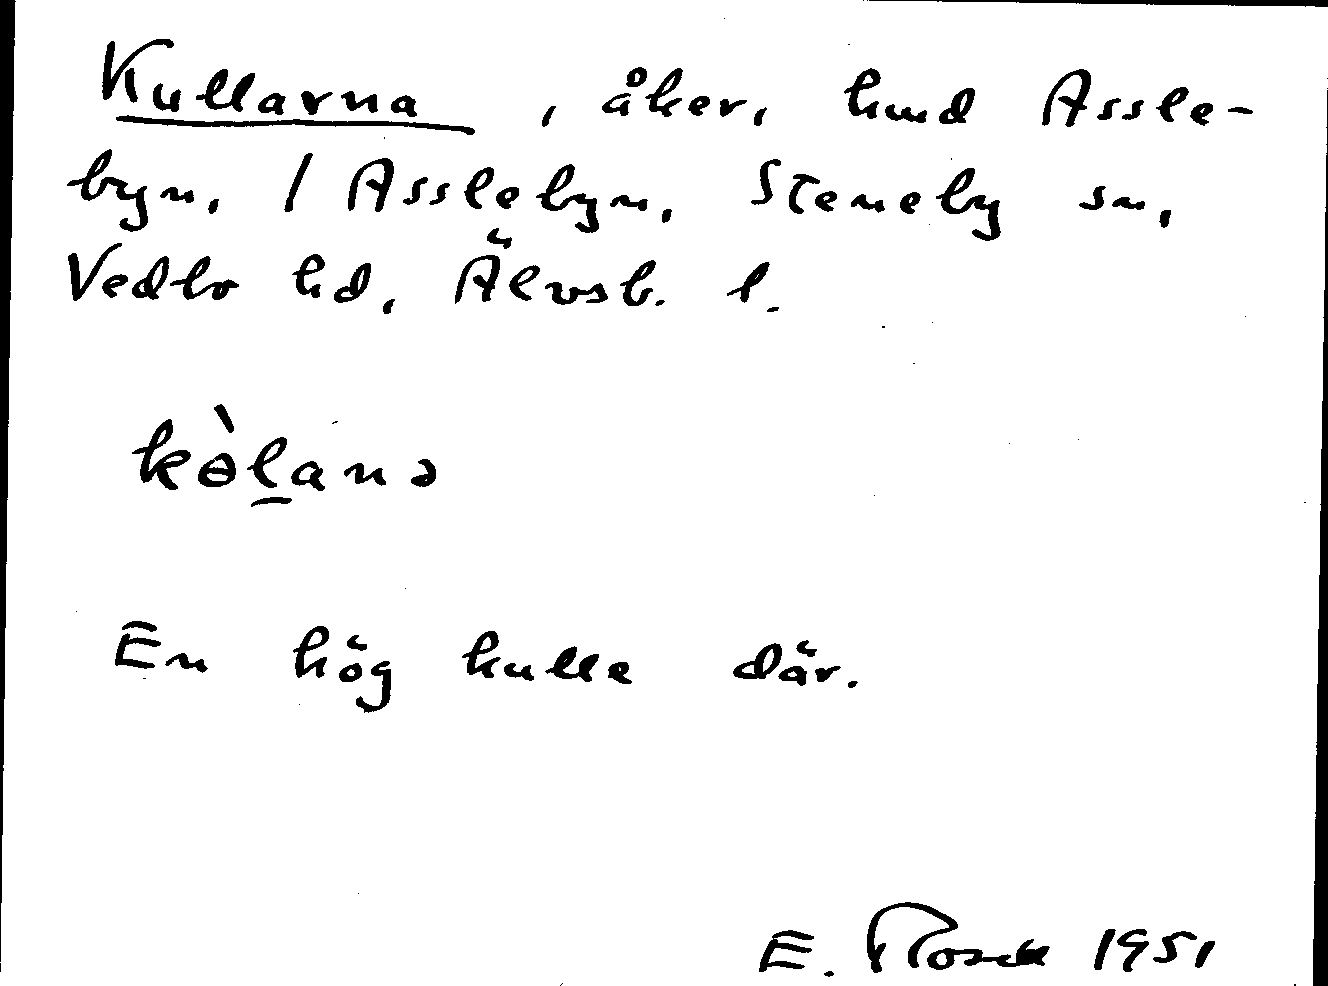 Kullarna, åker, hmd Assle-
byn, 1 Asslebyn, Steneby sn,
Vedbo hd, Älvsb. l.
kɵ̀l̠anə
En hög kulle där.
E. 1951